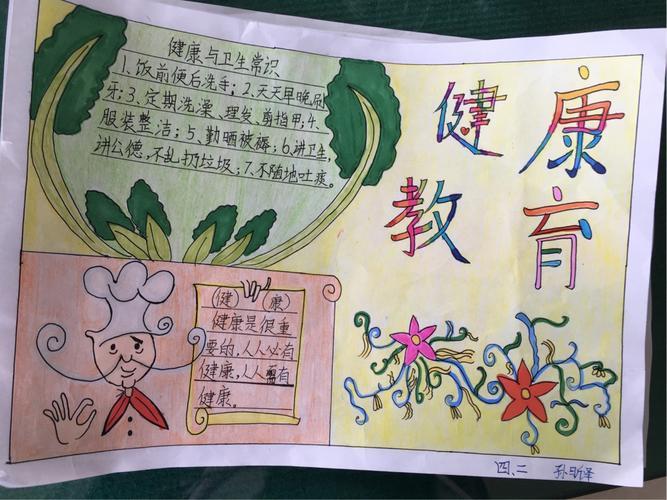 健康与卫生常识
1、饭前便后洗手；2、天天早晚刷
牙；3、定期洗澡、理发、剪指甲；4、
服装整洁；5、勤晒被褥；6、讲卫生，
讲公德，不乱扔垃圾；7、不随地吐痰。
健康
教育
（健）（康）
健康是很重
要的，人人必有
健康，人人需有
健康。
四、二 孙昕泽